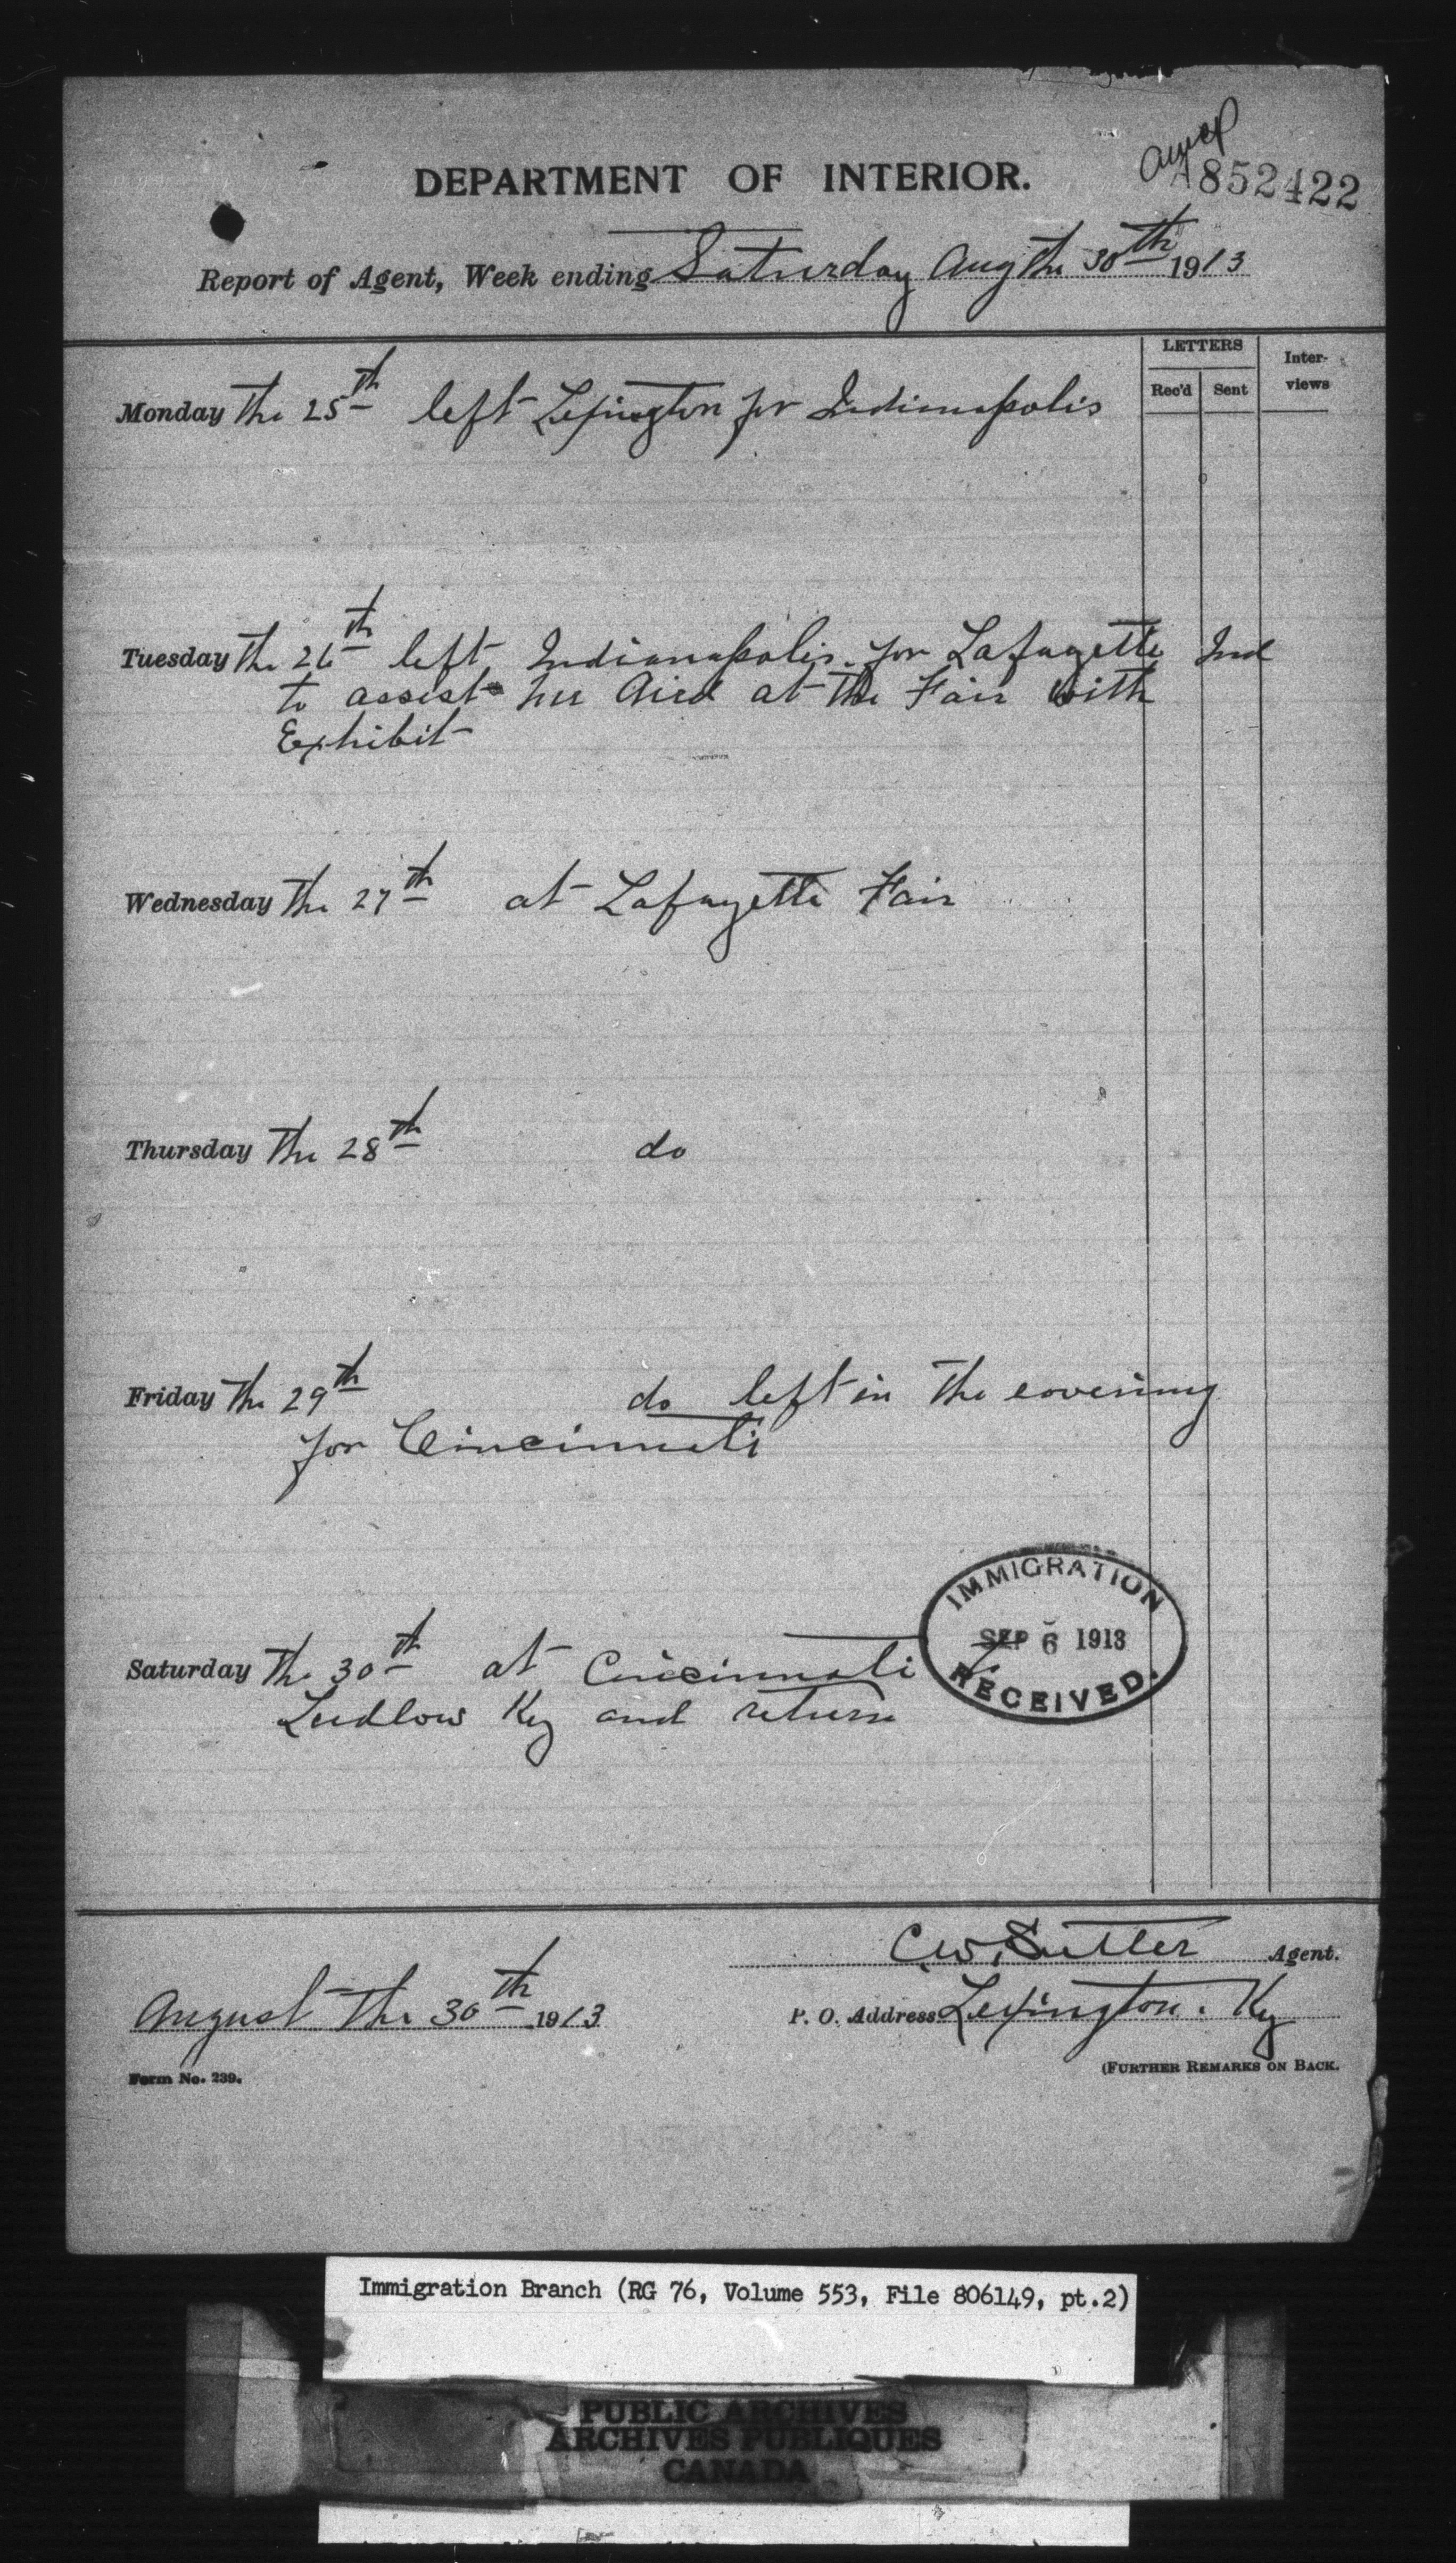 852422
DEPARTMENT OF INTERIOR.
Report of Agent, Week ending Saturday Aug the 30th 1913
LETTERS
Inter-
views
Rec'd Sent
Monday the 25th left Lexington for Indianapolis
Tuesday the 26th left Indianapolis for Lafayette Ind
to assist Aird at the Fair with
Exhibit
Wednesday the 27th at Lafayette Fair
Thursday the 28th do
Friday the 29th do left in the evening
for Cincinnati
IMMIGRATION
SEP 6 1913
RECEIVED.
Saturday the 30th at Cincinnati
Ludlow Ky and return
C.W. Sutter Agent.
August the 30th 1913
P. O. Address Lexington. Ky
Form No. 239.
(FURTHER REMARKS ON BACK.
Immigration Branch (RG 76, Volume 553, File 806149, pt.2)
PUBLIC ARCHIVES
ARCHIVES PUBLIQUES
CANADA